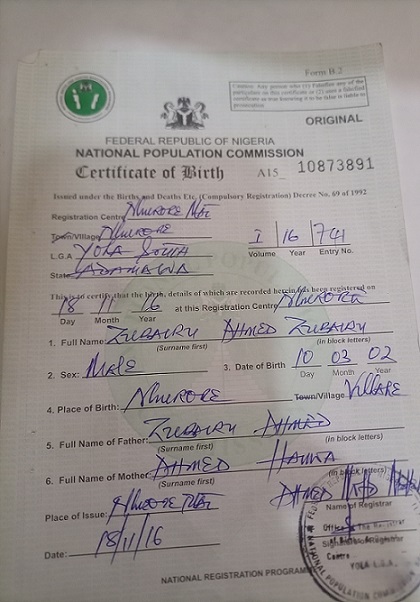 Form B.2
Caution: Any person who (1) Falsifies any of the
particulars on this certificate or (2) uses a falsified
certificate as true knowing it to be false is liable to
prosecution
ORIGINAL
FEDERAL REPUBLIC OF NIGERIA
NATIONAL POPULATION COMMISSION
Certificate of Birth A15_ 10873891
Issued under the Births and Deaths Etc. (Compulsory Registration) Decree No. 69 of 1992
Registration Centre
Town/Village
L.G.A YOLA SOUTH I 16 741
State ADAMAWA Volume Year Entry No.
This is to certify that the birth, details of which are recorded herein has been registered on
18 11 16 at this Registration Centre
Day Month Year
1. Full Name: ZUBAIRU AHMED ZUBAIRU
(Surname first) (in block letters)
2. Sex: MALE 3. Date of Birth 10 03 02
Day Month Year
4. Place of Birth: Town/Village VILLAGE
5. Full Name of Father: ZUBAIRU AHMED
(Surname first) (in block letters)
6. Full Name of Mother: AHMED HAUWA
(Surname first) (in block letters)
Place of Issue: AHMED
Name of Registrar
Date: 18/11/16
Signature of Registrar
YOLA L.G.A.
NATIONAL REGISTRATION PROGRAM